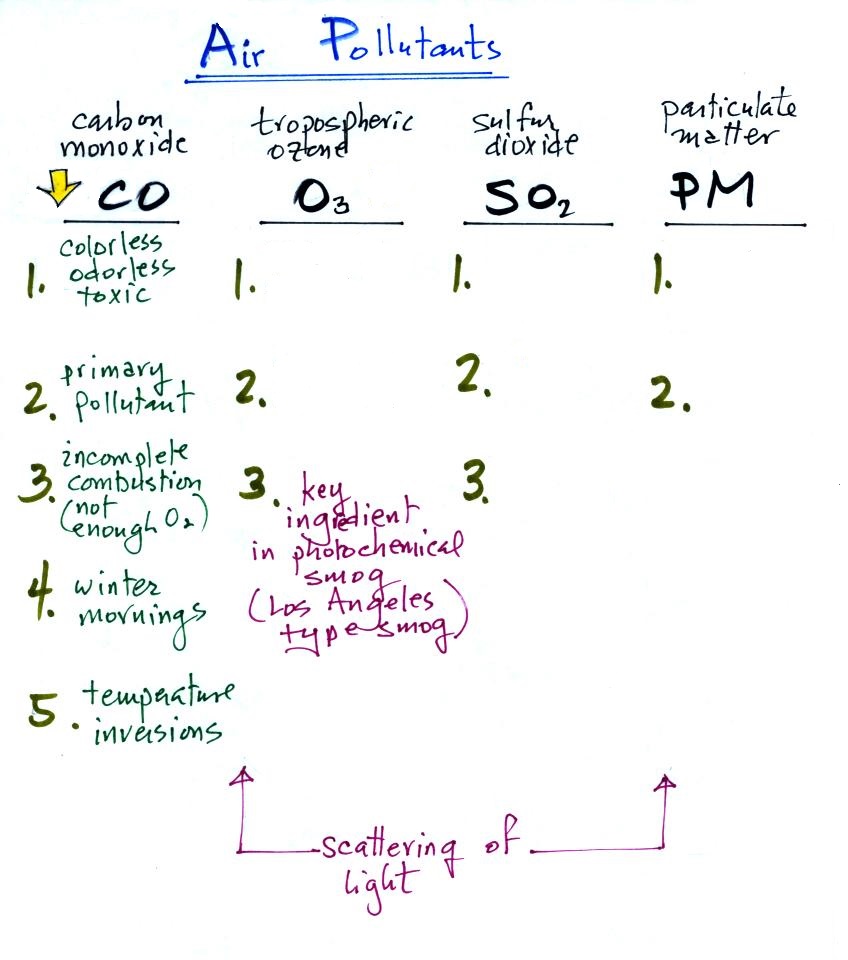 Air Pollutants
carbon
monoxide
CO
1. colorless
odorless
toxic
2. primary
pollutant
3. incomplete
combustion
(not
enough O₂)
4. winter
mornings
5. temperature
inversions
tropospheric
ozone
O₃
1.
2.
3. key
ingredient
in photochemical
smog
(Los Angeles
type smog)
sulfur
dioxide
SO₂
1.
2.
3.
particulate
matter
PM
1.
2.
scattering of
light